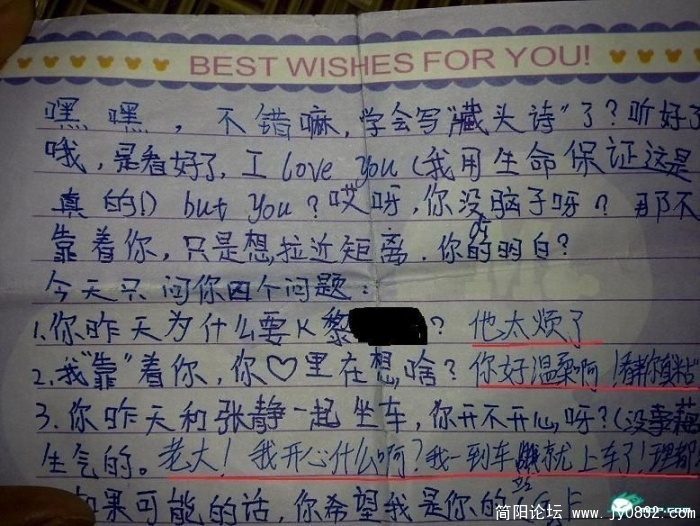 BEST WISHES FOR YOU!
嘿嘿，不错嘛，学会写"藏头诗"了？听好了
哦，是看好了，I love you（我用生命保证这是
真的！）but you？哎呀，你没脑子呀？那不
靠着你，只是想，拉近距离，你的明白？
今天只问你四个问题：
1.你昨天为什么要K黎？他太烦了
2.我"靠"着你，你♡里在想，啥？你好温柔啊！
3.你昨天和张静一起坐车，你开不开心，呀？（没事
生气的。老大！我开心什么啊？我一到车就上车了！理都
如果可能的话，你希望我是你的
简阳论坛 www.jy0832.com